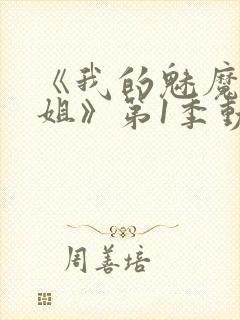 《我的魅魔
姐》第1季動
周善培